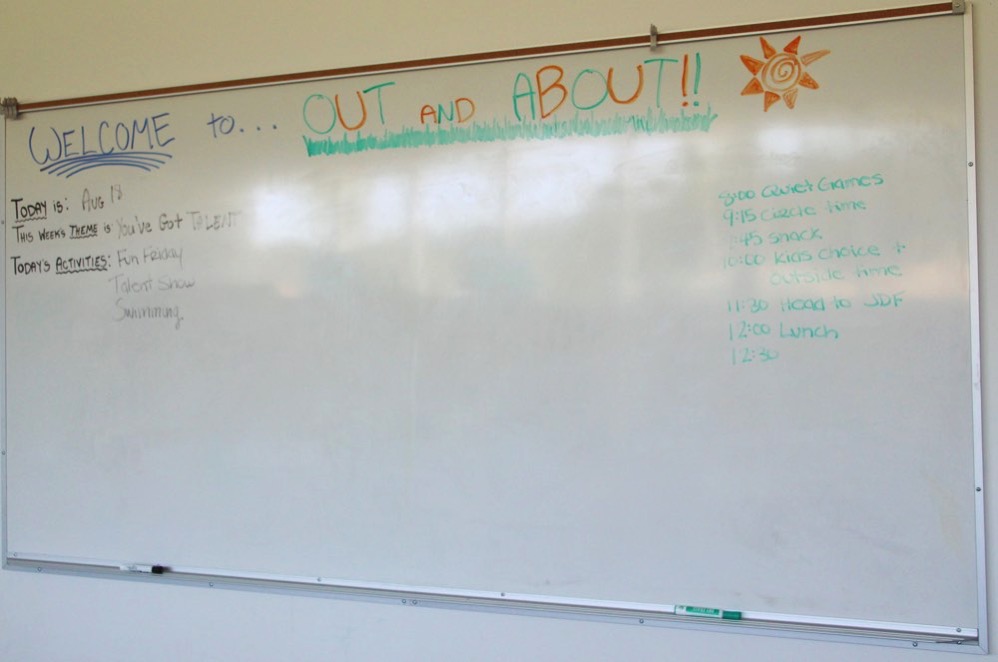 WELCOME to... OUT AND ABOUT!!
TODAY IS: Aug 18
THIS WEEK'S THEME IS: You've Got TALENT
TODAY'S ACTIVITIES: Fun Friday
Talent Show
Swimming
8:00 Quiet Games
9:15 Circle time
9:45 snack
10:00 kids choice +
outside time
11:30 Head to JDF
12:00 Lunch
12:30